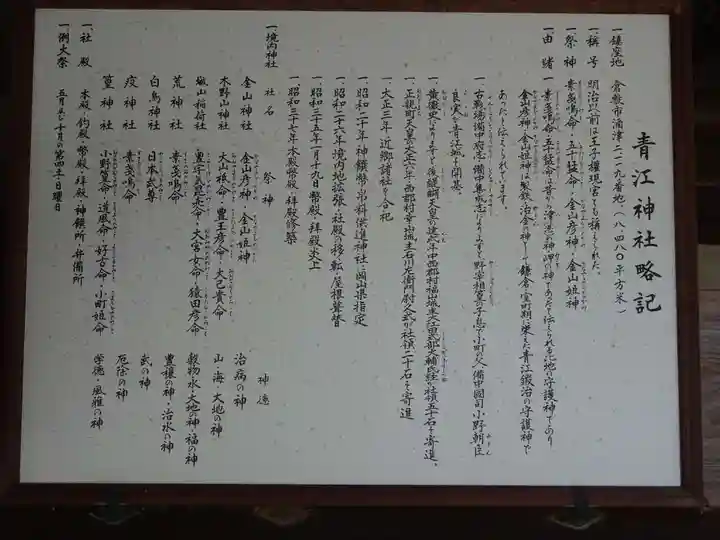 青江神社略記
一鎮座地　倉敷市酒津二一一九番地（八、四八〇平方米）
一称号　明治以前は王子権現宮とも称えられた。
一祭神　素戔嗚命・五十猛命・金山彦神・金山姫神
一由緒　素戔嗚命・五十猛命は昔から津・港・岬の神であったと伝えられる此地の守護神であり
金山彦神・金山姫神は製鉄冶金の神として鎌倉・室町期に栄えた青江鍛冶の守護神で
あったと伝えられています。
一、古戦場備中府志・備中集成志によりますと野宰相篁の子息で小町の父備中國司小野朝臣
良実が青江城を開基。
一、黄薇史によりますと後醍醐天皇の建武年中西郡村福山城主大江田式部大輔氏経が社領五十石を寄進。
一、正親町天皇の天正六年西郡村幸山城主石川左衛門尉久式が社領二十石を寄進
一、大正三年近郷諸社を合祀
一、昭和二十年神饌幣帛料供進神社に岡山県指定
一、昭和二六年境内地拡張・社殿の移転・屋根葺替
一、昭和三五年一月十九日幣殿・拝殿炎上
一、昭和三七年本殿幣殿・拝殿修築
一境内神社
社名　祭神　神德
金山神社　金山彦神・金山姫神　治病の神
木野山神社　大山祇命・豊玉彦命・大己貴命　山・海・大地の神
城山稲荷社　豊宇気毘売命・大宮女命・猿田彦命　穀物水・大地の神・福の神
荒神社　素戔嗚命　豊穣の神・治水の神
白鳥神社　日本武尊　武の神
疫神社　素戔嗚命　厄除の神
篁神社　小野篁命・道風命・好古命・小町姫命　学徳・風雅の神
一社殿　本殿・釣殿・幣殿・拝殿・神饌所・弁備所
一例大祭　五月及び十月の第四土・日曜日